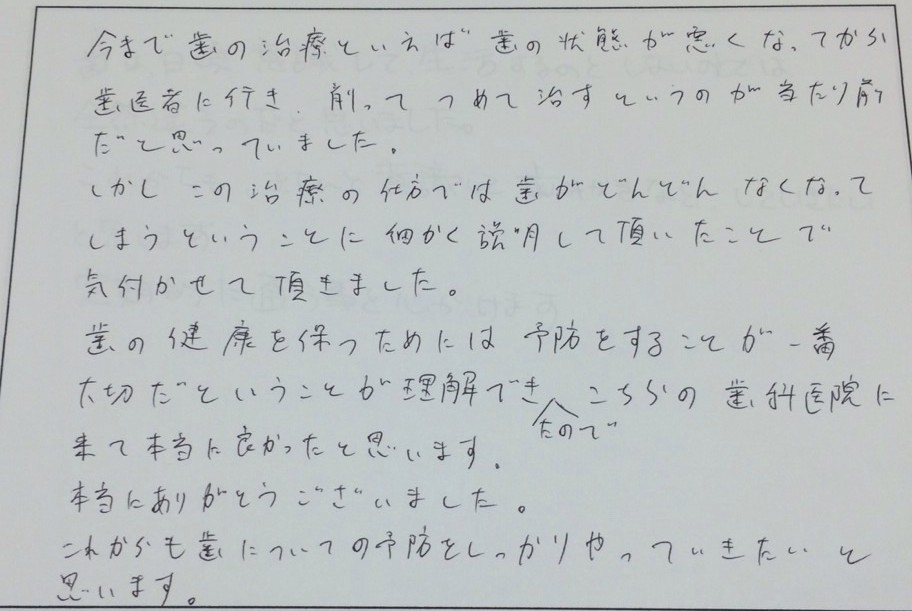 今まで歯の治療といえば歯の状態が悪くなってから
歯医者に行き、削ってつめて治すというのが当たり前
だと思っていました。
しかしこの治療の仕方では歯がどんどんなくなって
しまうということに細かく説明して頂いたことで
気付かせて頂きました。
歯の健康を保つためには予防をすることが一番
大切だということが理解できたのでこちらの歯科医院に
来て本当に良かったと思います。
本当にありがとうございました。
これからも歯についての予防をしっかりやっていきたいと
思います。